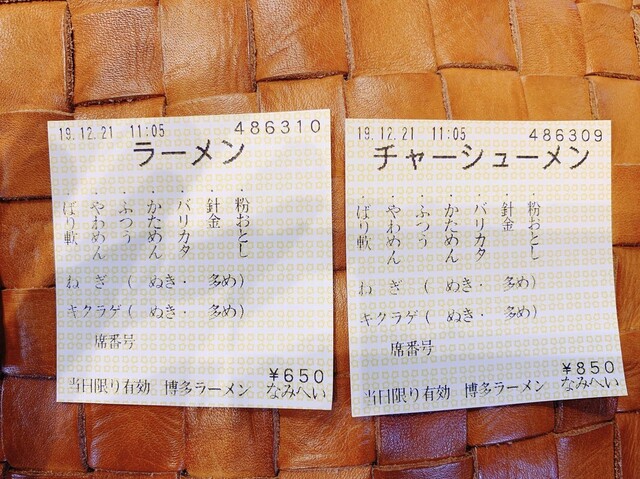 19.12.21 11:05 486310
ラーメン
・粉おとし
・針金
・バリカタ
・かためん
・ふつう
・やわめん
・ばり軟
ねぎ( ぬき・ 多め)
キクラゲ( ぬき・ 多め)
席番号
¥650
当日限り有効 博多ラーメン なみへい
19.12.21 11:05 486309
チャーシューメン
・粉おとし
・針金
・バリカタ
・かためん
・ふつう
・やわめん
・ばり軟
ねぎ( ぬき・ 多め)
キクラゲ( ぬき・ 多め)
席番号
¥850
当日限り有効 博多ラーメン なみへい